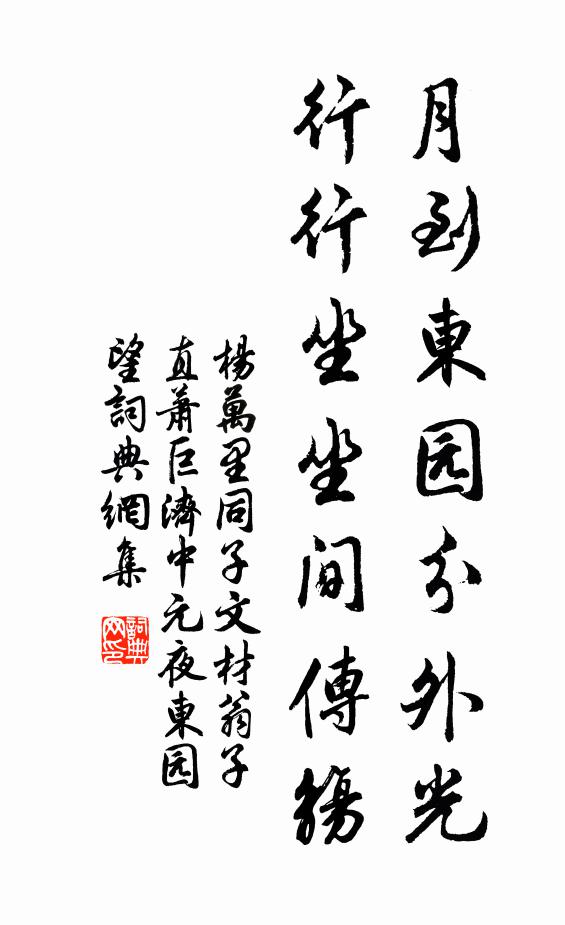 月到東园分外光
行行坐坐间傳觴
楊萬里同子文材翁子
直蕭巨濟中元夜東园
望詞典網集
詞典
网印